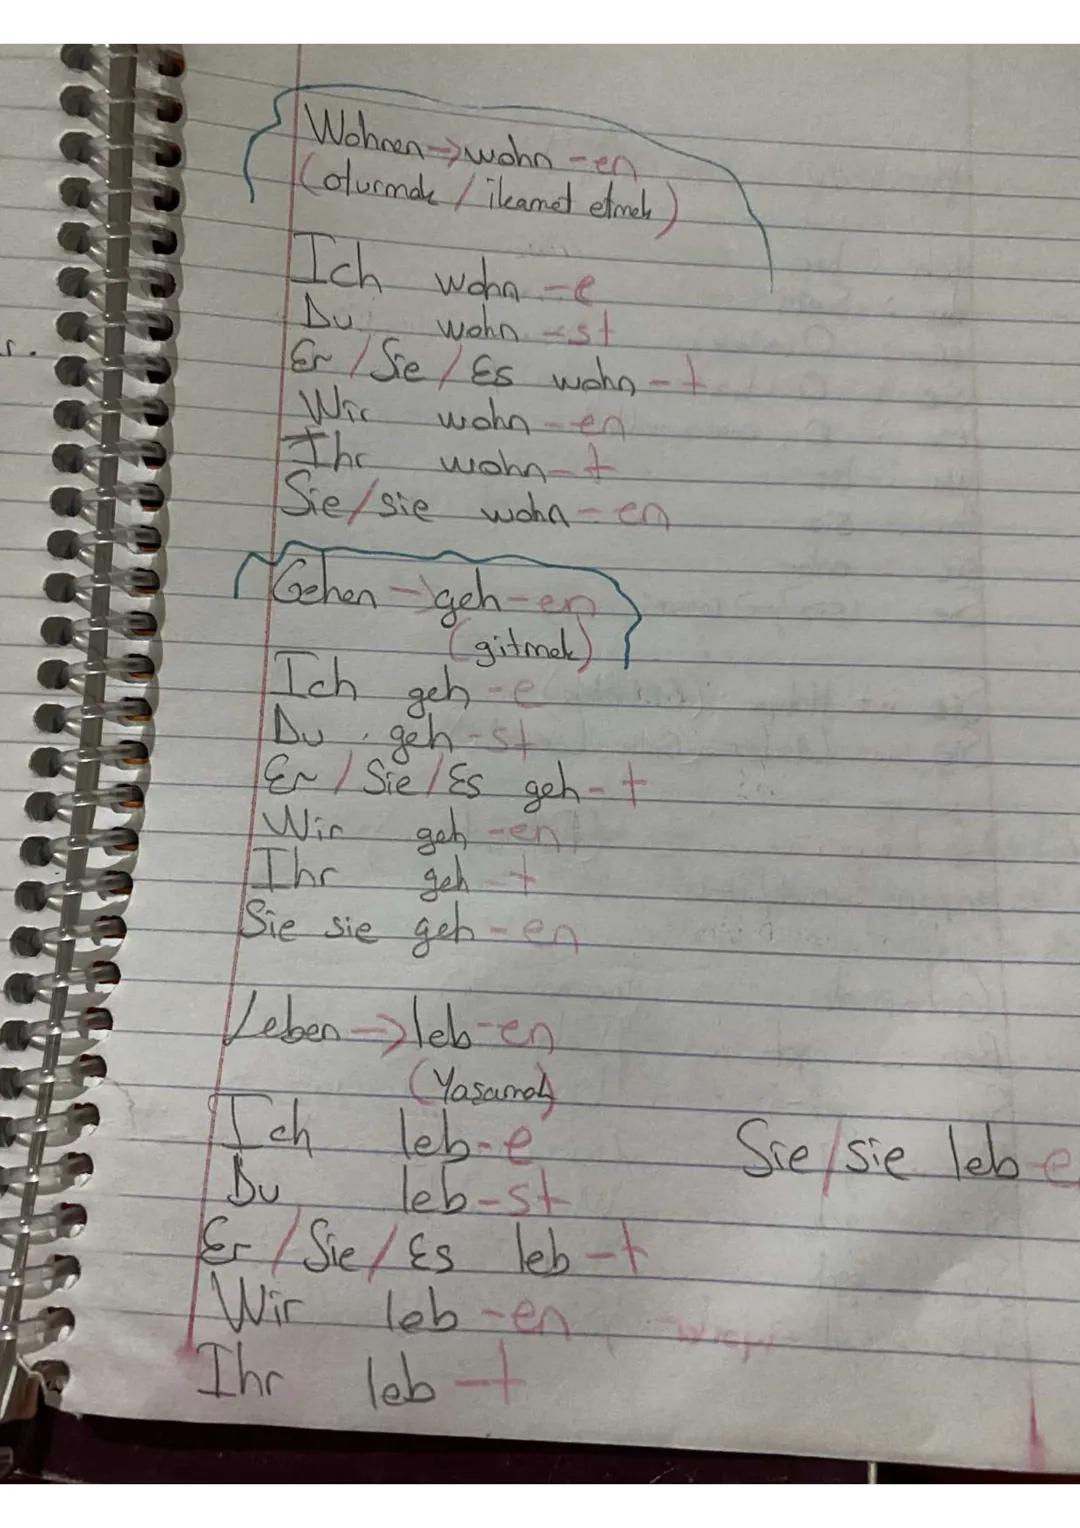 Wohnen→wohn -en
(oturmak / ikamet etmek)
Ich wohn -e
Du wohn -st
s.
Er / Sie / Es wohn -t
Wir wohn -en
Ihr wohn -t
Sie/sie wohn -en
Gehen →geh-en
(gitmek)
Ich geh -e
Du geh -st
Er / Sie / Es geh -t
Wir geh -en
Ihr geh -t
Sie sie geh -en
Leben →leb-en
(Yaşamak)
Ich leb-e
Sie/sie leb-e
Du leb-st
Er / Sie / Es leb -t
Wir leb -en
Ihr leb -t